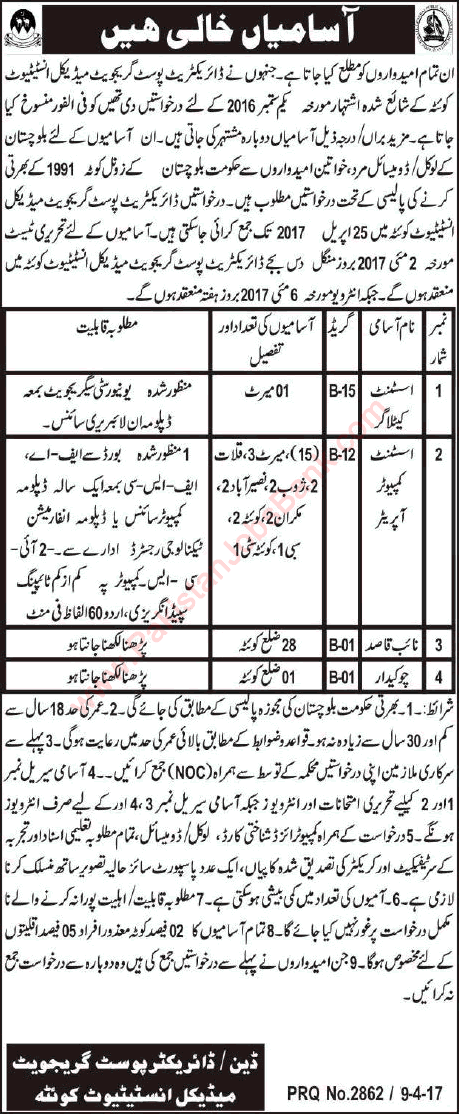 آسامیاں خالی ھیں
ان تمام امیدواروں کو مطلع کیا جاتا ہے۔ جنہوں نے ڈائریکٹریٹ پوسٹ گریجویٹ میڈیکل انسٹیٹیوٹ
کوئٹہ کے شائع شدہ اشتہار مورخہ یکم ستمبر 2016 کے لئے درخواستیں دی تھیں کو فی الفور منسوخ کیا
جاتا ہے۔ مزید براں/ درجہ ذیل آسامیاں دوبارہ مشتہر کی جاتی ہیں۔ ان آسامیوں کے لئے بلوچستان
کے لوکل/ ڈومیسائل مرد، خواتین امیدواروں سے حکومت بلوچستان کے زونل کوٹہ 1991 کے بھرتی
کرنے کی پالیسی کے تحت درخواستیں مطلوب ہیں۔ درخواستیں ڈائریکٹریٹ پوسٹ گریجویٹ میڈیکل
انسٹیٹیوٹ کوئٹہ میں 25 اپریل 2017 تک جمع کرائی جاسکتی ہیں۔ آسامیوں کے لئے تحریری ٹیسٹ
مورخہ 2 مئی 2017 بروز منگل دس بجے ڈائریکٹریٹ پوسٹ گریجویٹ میڈیکل انسٹیٹیوٹ کوئٹہ میں
منعقد ہوں گے۔ جبکہ انٹرویو مورخہ 6 مئی 2017 بروز ہفتہ منعقد ہوں گے۔
نمبر شمار نام آسامی گریڈ آسامیوں کی تعداد اور تفصیل مطلوبہ قابلیت
1 اسسٹنٹ کیٹلاگر B-15 01 میرٹ منظور شدہ یونیورسٹی سے گریجویٹ بمعہ
ڈپلومہ ان لائبریری سائنس۔
2 اسسٹنٹ کمپیوٹر آپریٹر B-12 (15)، میرٹ 3، قلات
2، ژوب 2، نصیر آباد 2،
مکران 2، کوئٹہ 2،
سبی 1، کوئٹہ سٹی 1
1 منظور شدہ بورڈ سے ایف-اے،
ایف-ایس-سی بمعہ ایک سالہ ڈپلومہ
کمپیوٹر سائنس یا ڈپلومہ انفارمیشن
ٹیکنالوجی رجسٹرڈ ادارے سے۔ 2- آئی-
سی-ایس- کمپیوٹر پہ کم از کم ٹائپنگ
سپیڈ انگریزی، اردو 60 الفاظ فی منٹ
3 نائب قاصد B-01 28 ضلع کوئٹہ پڑھنا لکھنا جانتا ہو
4 چوکیدار B-01 01 ضلع کوئٹہ پڑھنا لکھنا جانتا ہو
شرائط:۔ 1- بھرتی حکومت بلوچستان کی مجوزہ پالیسی کے مطابق کی جائے گی۔ 2- عمر کی حد 18 سال سے
کم اور 30 سال سے زیادہ نہ ہو۔ قواعد و ضوابط کے مطابق بالائی عمر کی حد میں رعایت ہوگی۔ 3 پہلے سے
سرکاری ملازمین اپنی درخواستیں محکمہ کے توسط سے ہمراہ (NOC) جمع کرائیں۔۔ 4 آسامی سیریل نمبر
1 اور 2 کیلئے تحریری امتحانات اور انٹرویوز جبکہ آسامی سیریل نمبر 3، 4 اور کے لیے صرف انٹرویوز
ہونگے۔ 5 درخواست کے ہمراہ کمپیوٹرائزڈ شناختی کارڈ، لوکل/ ڈومیسائل، تمام مطلوبہ تعلیمی اسناد اور تجربہ
کے سرٹیفکیٹ اور کریکٹر کی تصدیق شدہ کاپیاں، ایک عدد پاسپورٹ سائز حالیہ تصویر ساتھ منسلک کرنا
لازمی ہے۔ 6- آمیوں کی تعداد میں کمی بیشی ہوسکتی ہے۔ 7 مطلوبہ قابلیت/ اہلیت پورا نہ کرنے والے نا
مکمل درخواست پر غور نہیں کیا جائے گا۔ 8 تمام آسامیوں کا 02 فیصد کوٹہ معذور افراد 05 فیصد اقلیتوں
کے لئے مخصوص ہوگا۔ 9 جن امیدواروں نے پہلے سے درخواستیں جمع کی ہیں وہ دوبارہ سے درخواست جمع
نہ کرائیں۔
ڈین/ ڈائریکٹر پوسٹ گریجویٹ
میڈیکل انسٹیٹیوٹ کوئٹه
PRQ No.2862 / 9-4-17
www.PakistanJobsBank.com